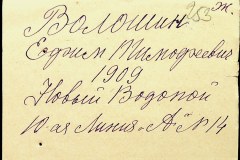 253 ж.
Волошин
Ефрим Тимофеевич
1909
Новый Водопой
10-ая Линия - А № 14